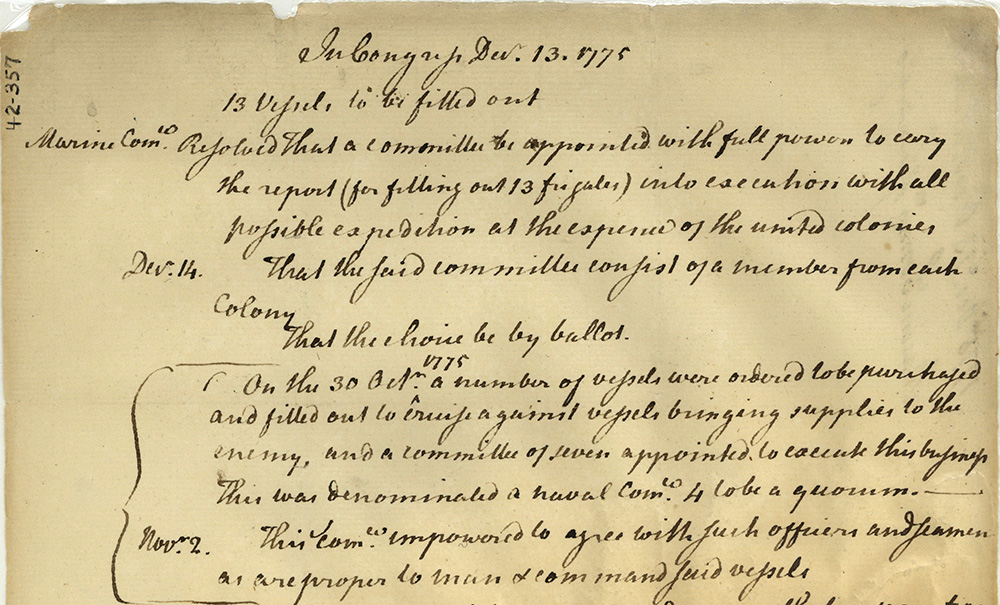 42-357
In Congress Decr. 13. 1775
13 Vessels to be fitted out
Marine Comee. Resolved That a committee be appointed with full power to cary
the report (for fitting out 13 frigates) into execution with all
possible expedition at the expence of the united colonies
Decr. 14. That the said committee consist of a member from each
Colony
That the choice be by ballot.
On the 30 Octr. 1775 a number of vessels were ordered to be purchased
and fitted out to cruise against vessels bringing supplies to the
enemy, and a committee of seven appointed to execute this business
This was denominated a naval Comee. 4 to be a quorum.
Novr. 2. This Comee. impowered to agree with such officers and seamen
as are proper to man & command said vessels